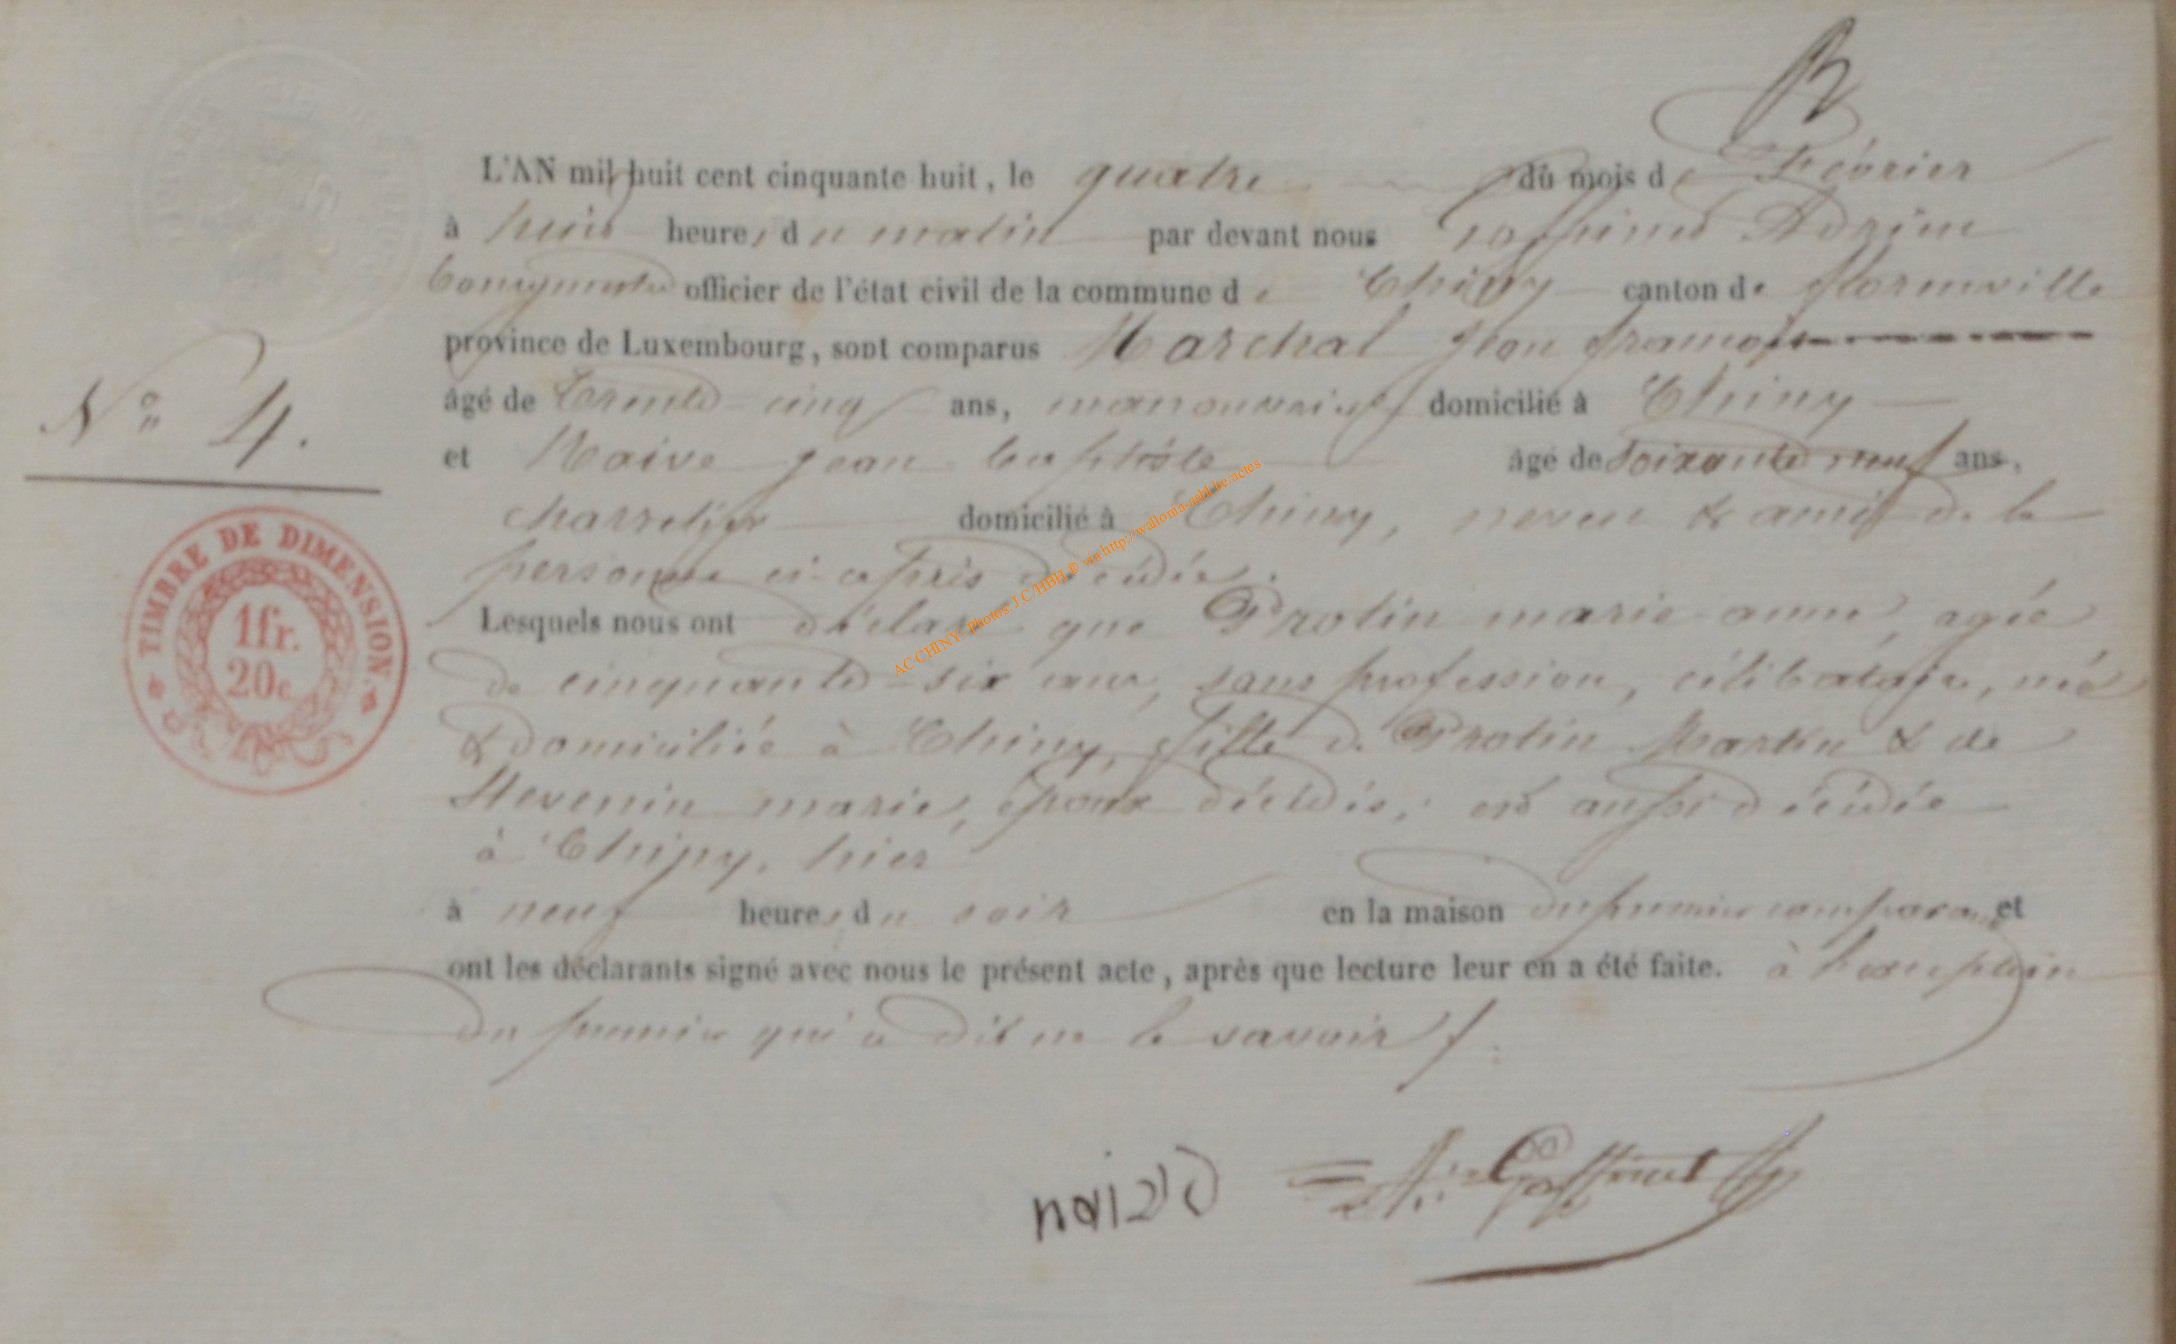 B
L'AN mil huit cent cinquante huit, le quatre du mois de Février
à huit heures du matin par devant nous Adrien
Bourgmestre officier de l'état civil de la commune de Chiny canton de Florenville
province de Luxembourg, sont comparus Marchal Jean françois
âgé de Trente cinq ans, manouvrier domicilié à Chiny
et Naive jean baptiste âgé de Soixante neuf ans,
charretier domicilié à Chiny, neveu & ami de la
personne ci après décédée.
Lesquels nous ont déclaré que Protin marie anne, agée
de cinquante-six ans, sans profession, célibataire, née
& domiciliée à Chiny, fille de Protin Martin & de
Stevenin marie, époux décédés, est aussi décédée
à Chiny, hier
à neuf heures du soir en la maison du premier comparant et
ont les déclarants signé avec nous le présent acte, après que lecture leur en a été faite. à l'exception
du premier qui a dit ne le savoir /.
N° 4.
TIMBRE DE DIMENSION
1fr.
20c
AC CHINY - Photos: J.C/HBH,® via http://wallonia-asbl.be/actes